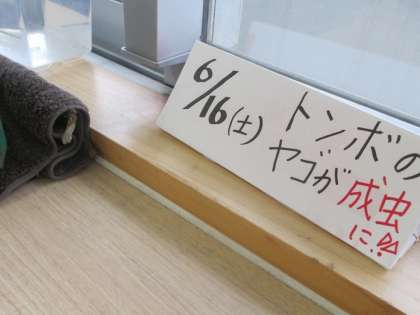 6/16(土)
トンボの
ヤゴが成虫
に!!